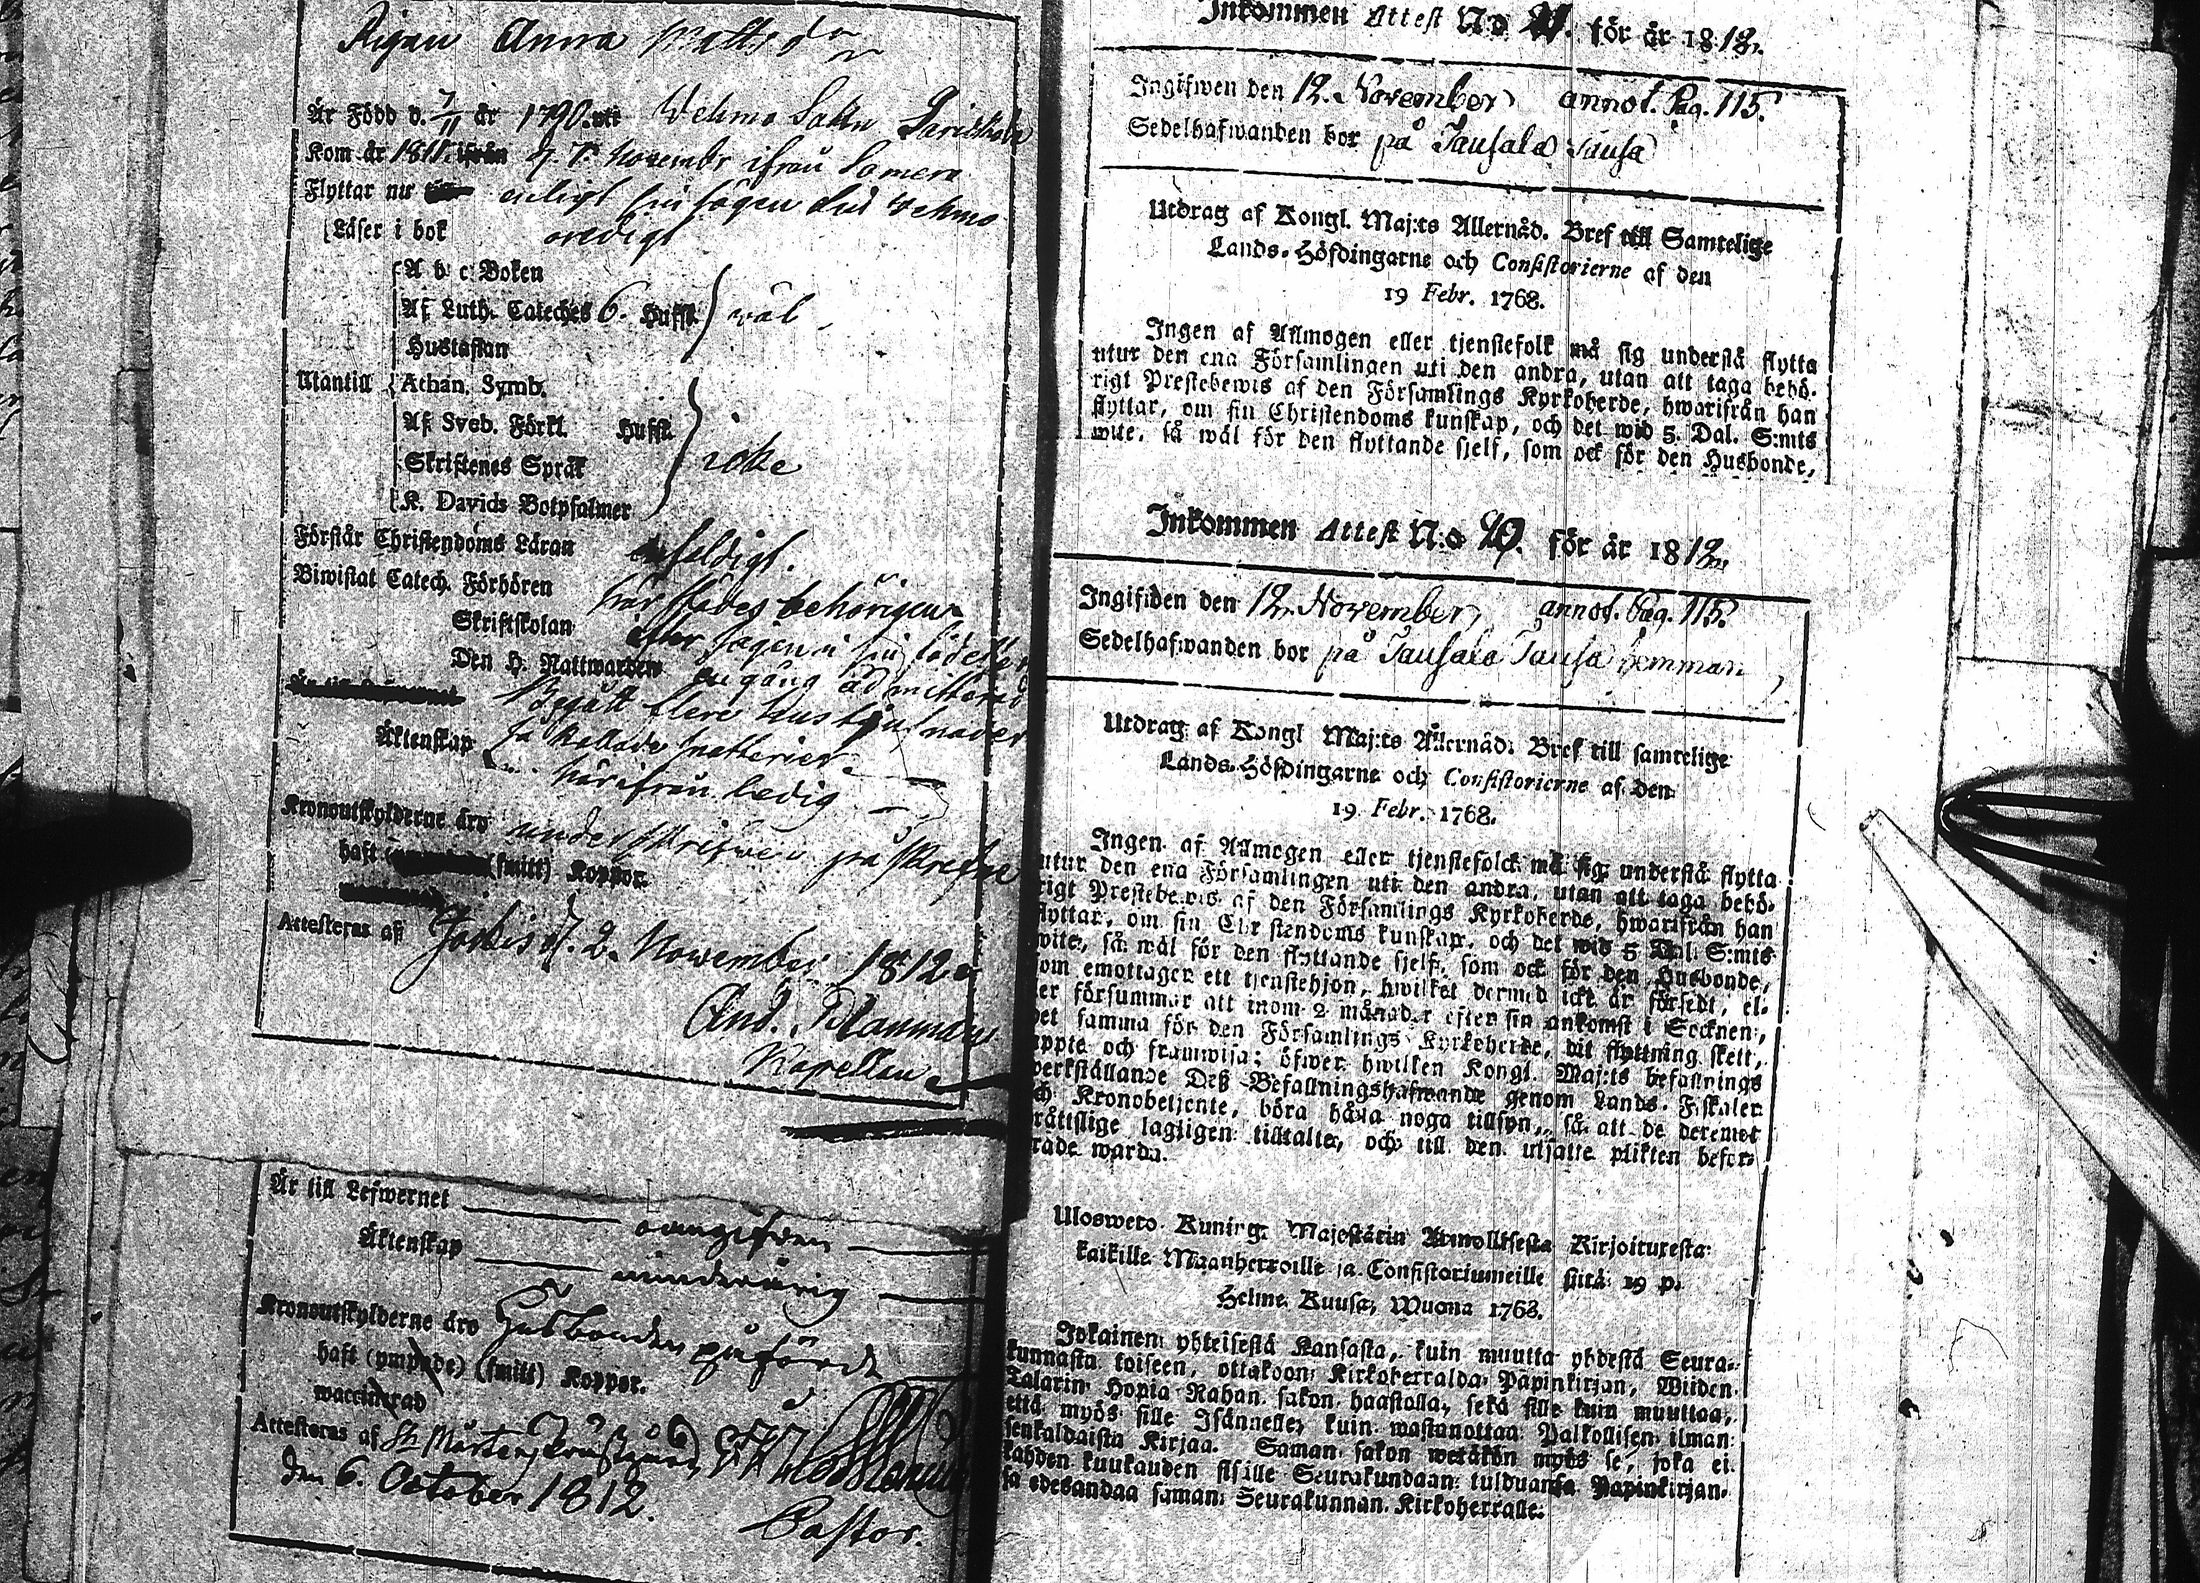 Pigan Anna Matts dr
Är Född d. 7/11 år 1790. uti Vehmo Sokn
Kom år 1811. ifrån d. 7. November ifrån Somero
Flyttar nu enligt sin sägen till Vehmo
Läser i bok oredigt
A b c Boken
Af Luth. Cateches 6. Hufst. wäl.
Hustaflan
Utantill Athan. Symb.
Af Sveb. Förkl. Hufst. icke
Skriftenes Språk
K. Davids Botpsalmer
Förstår Christendoms Läran enfeldigt.
Biwistat Catech. Förhören härstädes behörigen
Skriftskolan efter sägen i sin födelse
Den H. Nattwarden en gång admitterad
Begått flere
Äktenskap så kallade
härifrån ledig
Kronoutskylderne äro underskrifwen på
haft (smitt) Koppor.
Attesteras af Jockis d. 2. November 1812
And. Blanmans
Kapellan
Är till Lefwernet oangifven
Äktenskap minderårig
Kronoutskylderne äro Husbonden påförde
haft (ympade) (smitt) Koppor.
waccinerad
Attesteras af St Mårtens
den 6. October 1812.
Pastor.
Inkommen Attest No 21. för år 1812.
Ingifwen den 12. November annot. Pag. 115.
Sedelhafwanden bor på Tausala Tausa
Utdrag af Kongl. Maj:ts Allernåd. Bref till Samtelige
Lands-Höfdingarne och Consistorierne af den
19 Febr. 1768.
Ingen af Allmogen eller tjenstefolk må sig understå flytta
utur den ena Församlingen uti den andra, utan att taga behö-
rigt Prestebewis af den Församlings Kyrkoherde, hwarifrån han
flyttar, om sin Christendoms kunskap, och det wid 5. Dal. S:mts
wite, så wäl för den flyttande sjelf, som ock för den Husbonde,
Inkommen Attest N:o 20. för år 1812.
Ingifiden den 12. November annot. Pag. 115.
Sedelhafwanden bor på Tausala Tausa hemman
Utdrag af Kongl Maj:ts Allernåd. Bref till samtelige
Lands-Höfdingarne och Consistorierne af den
19 Febr. 1768.
Ingen af Allmogen eller tjenstefolck må sig understå flytta
utur den ena Församlingen uti den andra, utan att taga behö-
rigt Prestebewis af den Församlings Kyrkoherde, hwarifrån han
flyttar, om sin Christendoms kunskap, och det wid 5 Dal. S:mts
wite, så wäl för den flyttande sjelf, som ock för den Husbonde,
som emottager ett tjenstehjon, hwilket dermed icke är försedt, el-
ler försummar att inom 2 månader efter sin ankomst i Socknen,
det samma för den Församlings Kyrkoherde, dit flyttning skett,
uppte och framwisa; öfwer hwilken Kongl. Maj:ts befallnings
werkställande Deß Befallningshafwande genom Lands-Fiskaler
och Kronobetjente, böra hafwa noga tillsyn, så att de deremot
brättslige lagligen tilltalte, och till den utsatte plikten befor-
drade warda.
Ulosweto Kuning. Majestätin Armollisesta Kirjoituxesta
kaikille Maanherroille ja Consistoriumeille siitä 19 p.
Helme Kuusa, Wuona 1768.
Jokainen yhteisestä Kansasta, kuin muutta yhdestä Seura-
kunnasta toiseen, ottakoon Kirkoherralda Papinkirjan, Wiiden
Talarin Hopia Rahan sakon haastolla, sekä sille kuin muuttaa,
että myös sille Isännelle, kuin wastanottaa Palkollisen ilman
senkaldaista Kirjaa. Saman sakon wetäkön myös se, joka ei
kahden kuukauden sisälle Seurakundaan tulduansa Papinkirjan-
sa edesandaa saman Seurakunnan Kirkoherralle.